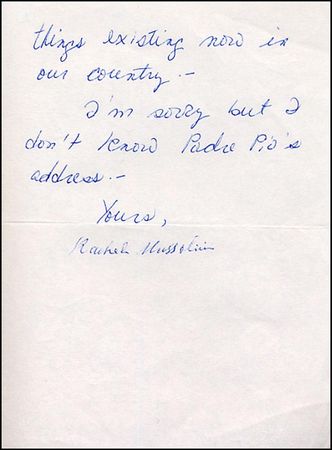 things existing now in
our country.-
I'm sorry but I
don't know Padre Pio's
address.-
Yours,
Rachele Mussolini